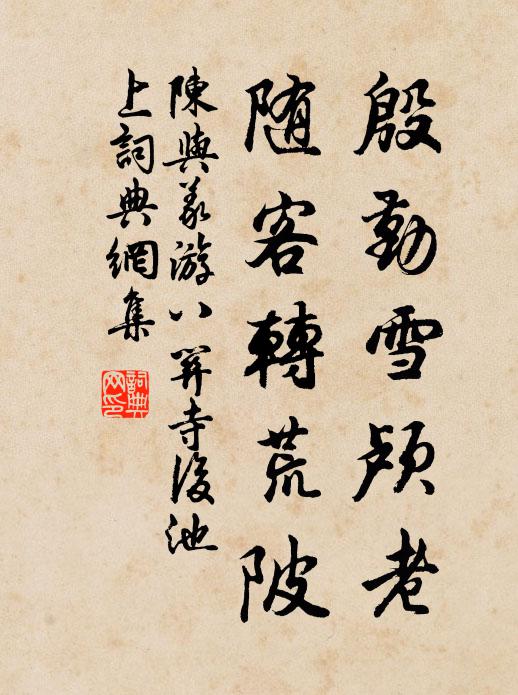 殷勤雪颅老
随客轉荒陂
陳與義游八關寺後池
上詞典網集
詞典
网印